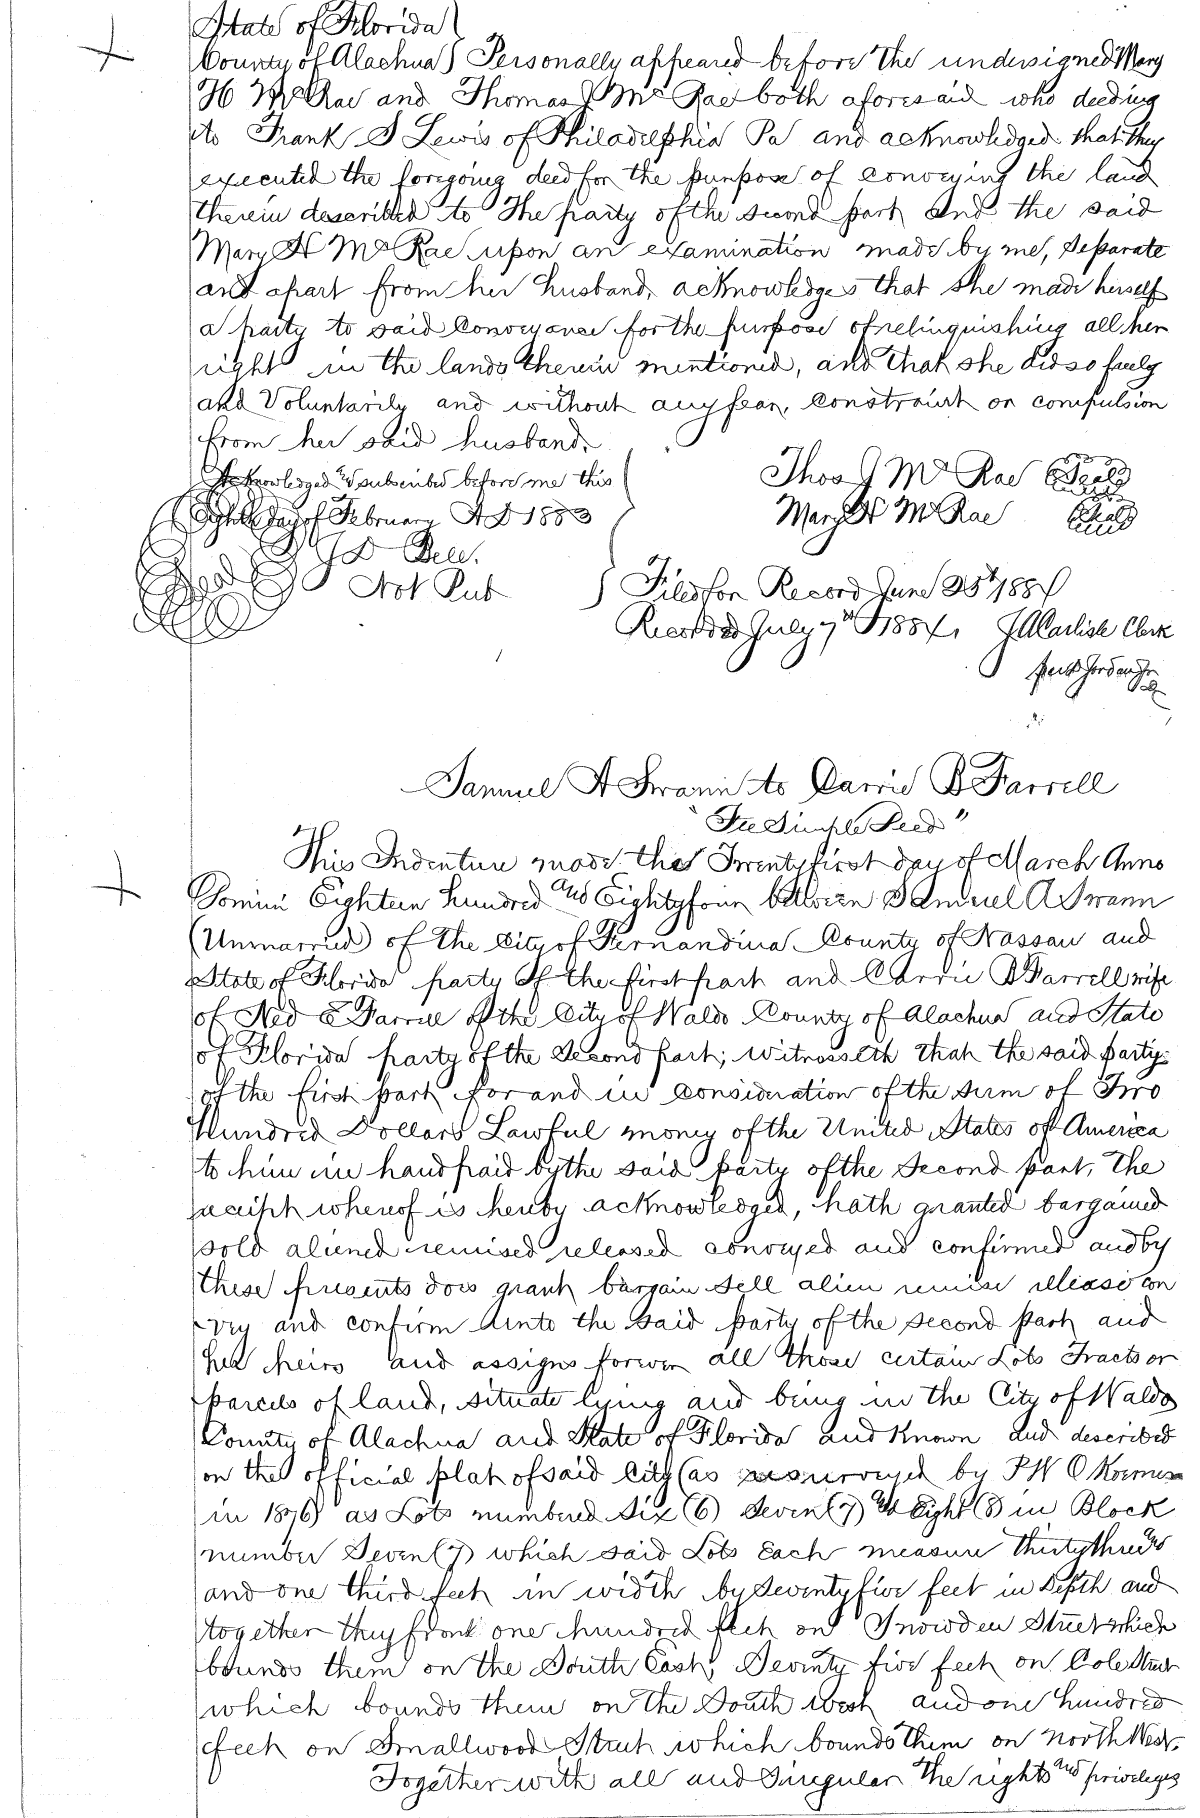 State of Florida }
County of Alachua } Personally appeared before the undersigned Mary
H McRae and Thomas J McRae both aforesaid who deeding
to Frank S Lewis of Philadelphia Pa and acknowledged that they
executed the foregoing deed for the purpose of conveying the land
therein described to the party of the second part and the said
Mary H McRae upon an examination made by me, separate
and apart from her husband, acknowledges that she made herself
a party to said Conveyance for the purpose of relinquishing all her
right in the lands therein mentioned, and that she did so freely
and Voluntarily and without any fear, constraint or compulsion
from her said husband.
Acknowledged and subscribed before me this
Eighth day of February A D 1883
Thos J McRae (Seal)
Mary H McRae (Seal)
Seal J D Bell.
Not Pub
Filed for Record June 25th 1884
Recorded July 7th 1884. J A Carlisle Clerk
Samuel A Swann to Carrie B Farrell
"Fee Simple Deed"
This Indenture made the Twenty first day of March Anno
Domini Eighteen hundred and Eightyfour between Samuel A Swann
(Unmarried) of the City of Fernandina County of Nassau and
State of Florida party of the first part and Carrie B Farrell wife
of Ned E Farrell of the City of Waldo County of Alachua and State
of Florida party of the Second part; witnesseth that the said party
of the first part for and in consideration of the sum of Two
Hundred Dollars Lawful money of the United States of America
to him in hand paid by the said party of the second part, the
receipt whereof is hereby acknowledged, hath granted bargained
sold aliened remised released conveyed and confirmed and by
these presents does grant bargain sell alien remise release con
vey and confirm unto the said party of the second part and
her heirs and assigns forever all those certain Lots Tracts or
parcels of land, situate lying and being in the City of Waldo
County of Alachua and State of Florida and Known and described
on the official plat of said City (as resurveyed by P W O Koerner
in 1876) as Lots numbered Six (6) Seven (7) and Eight (8) in Block
number Seven (7) which said Lots Each measure thirty three
and one third feet in width by Seventy five feet in Depth and
together they front one hundred feet on Snowden Street which
bounds them on the South East, Seventy five feet on Cole Street
which bounds them on the South west and one hundred
feet on Smallwood Street which bounds them on North West.
Together with all and Singular the rights and privileges